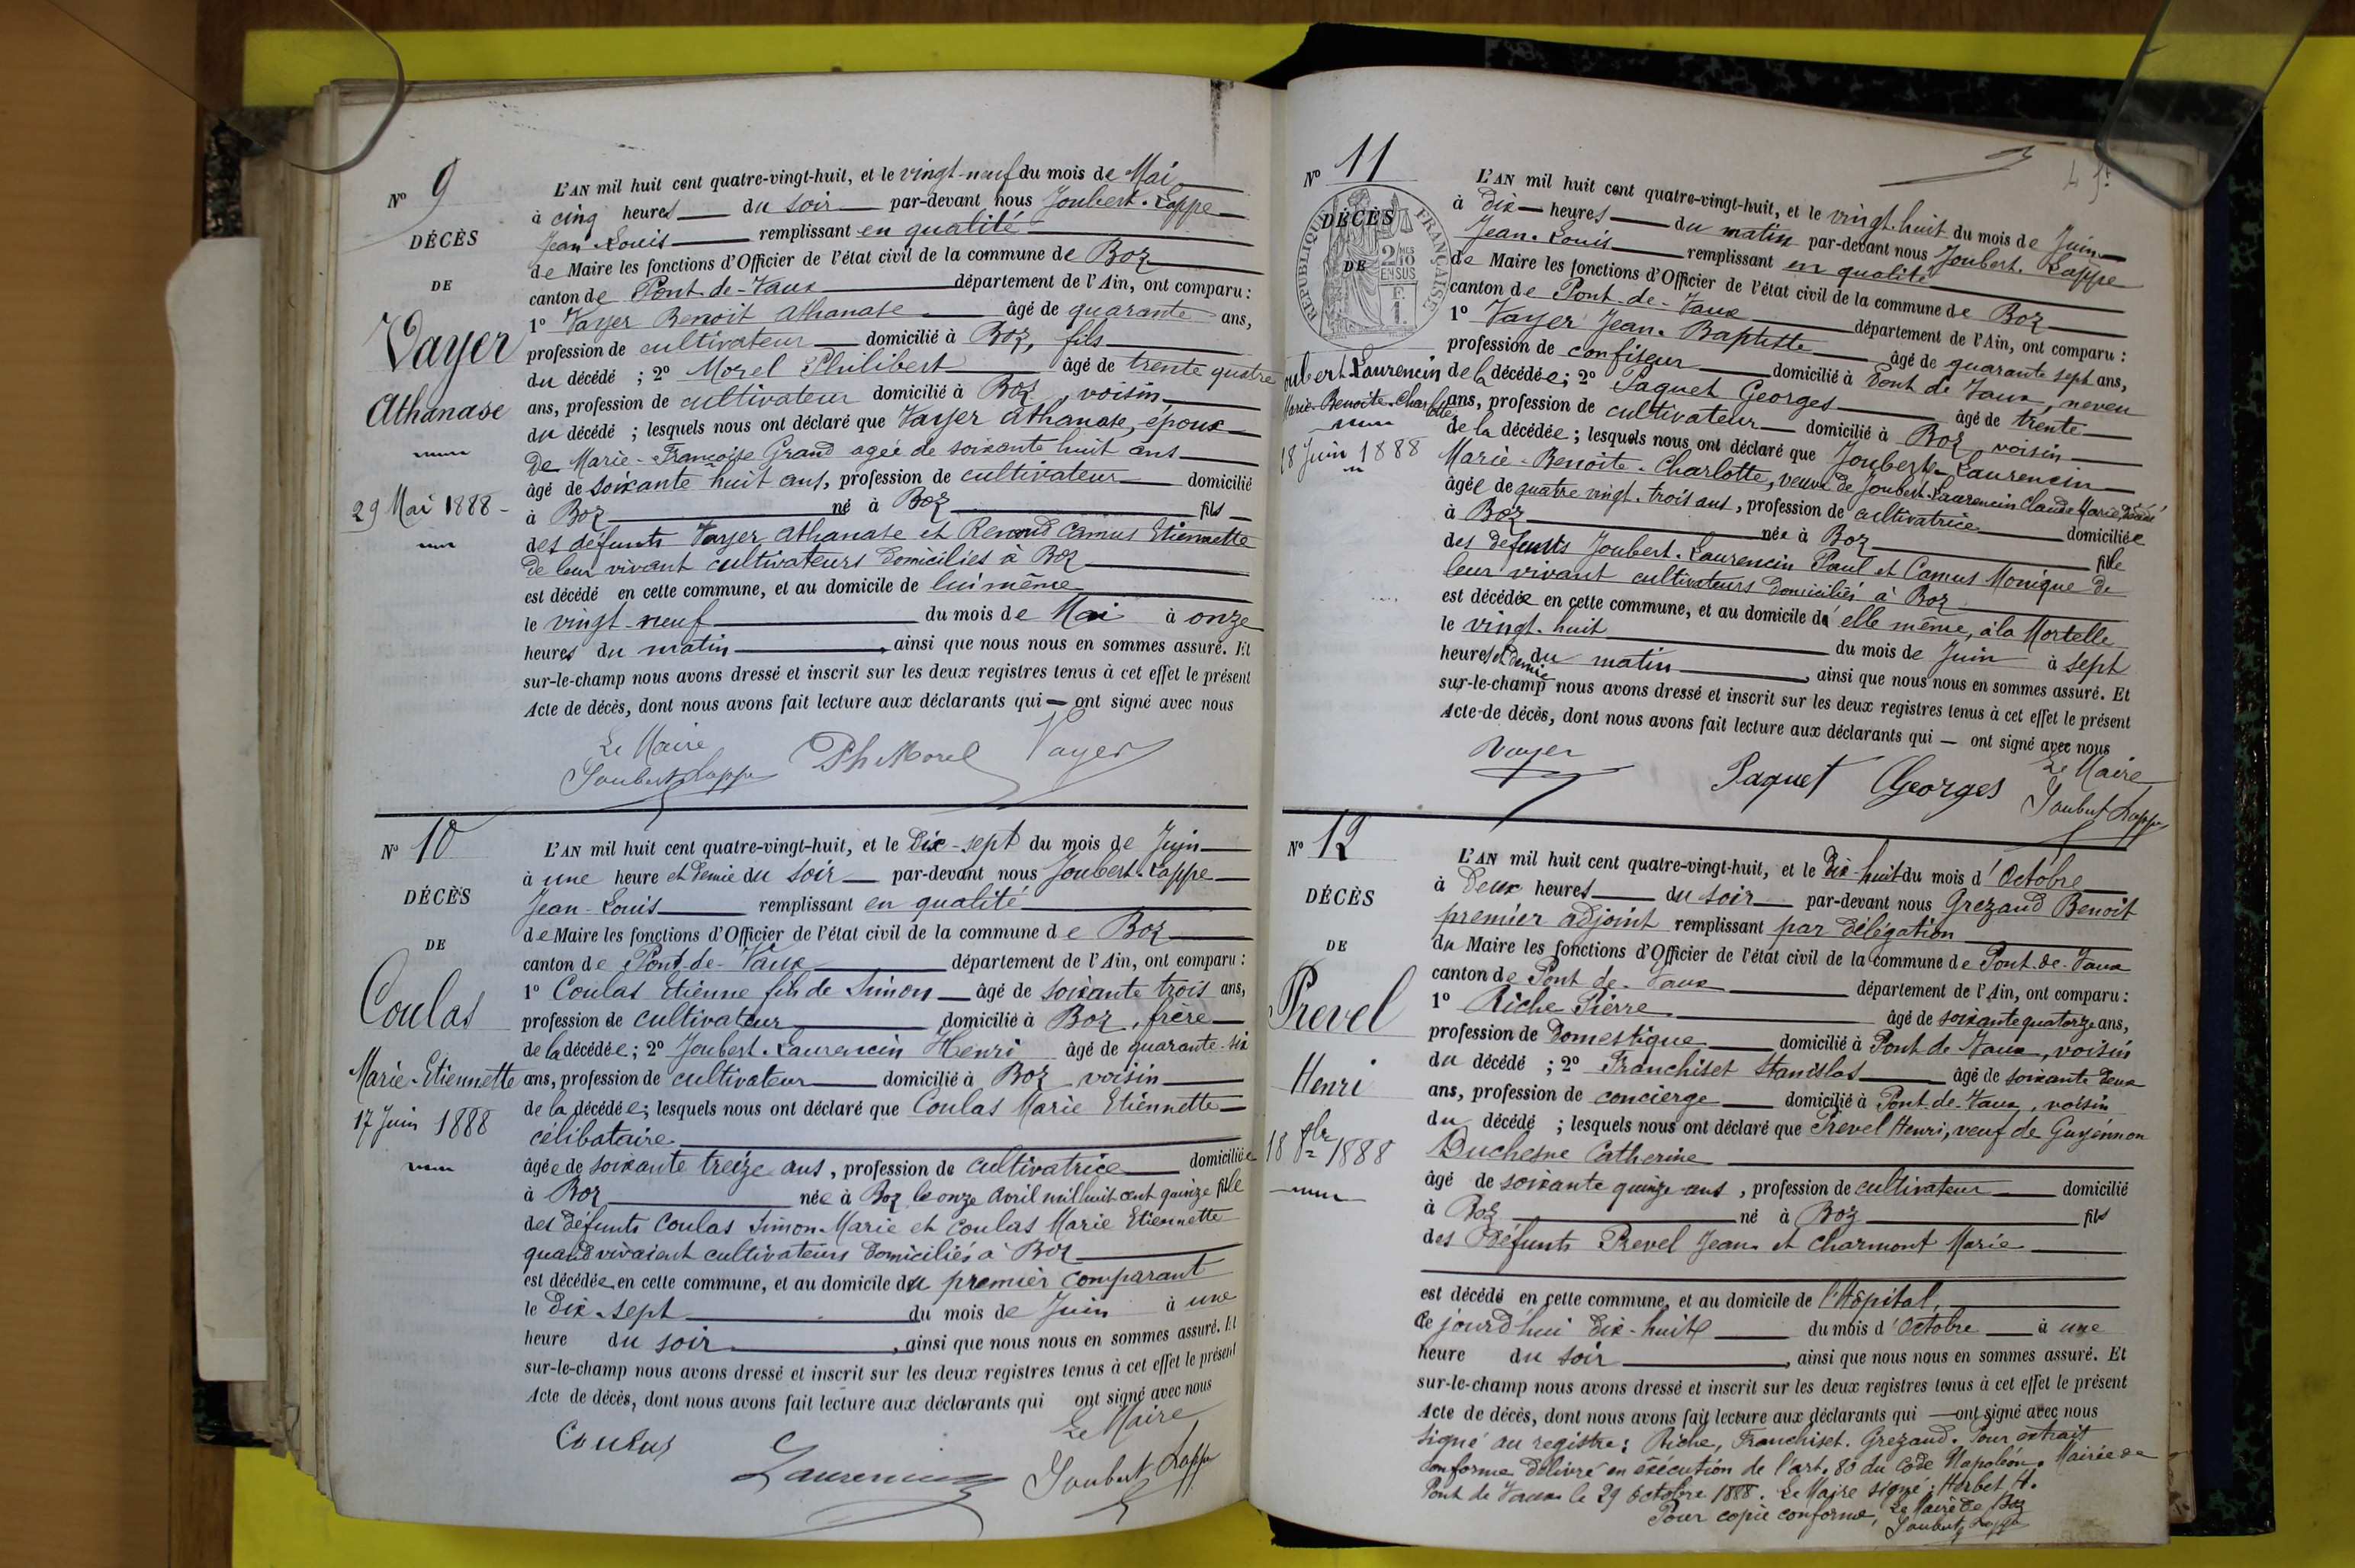 N° 9
DÉCÈS
DE
Vayer
Athanase
29 Mai 1888
L'AN mil huit cent quatre-vingt-huit, et le vingt-neuf du mois de Mai
à cinq heures du soir par-devant nous Joubert-Lappe
Jean-Louis remplissant en qualité
de Maire les fonctions d'Officier de l'état civil de la commune de Boz
canton de Pont-de-Vaux département de l'Ain, ont comparu :
1° Vayer Benoit Athanase âgé de quarante ans,
profession de cultivateur domicilié à Boz, fils
du décédé ; 2° Morel Philibert âgé de trente quatre
ans, profession de cultivateur domicilié à Boz, voisin
du décédé ; lesquels nous ont déclaré que Vayer Athanase, époux
De Marie-Françoise Grand agée de soixante huit ans
âgé de soixante huit ans, profession de cultivateur domicilié
à Boz né à Boz fils
des défunts Vayer Athanase et Renoud Camus Etiennette
de leur vivant cultivateurs domiciliés à Boz
est décédé en cette commune, et au domicile de lui même
le vingt-neuf du mois de Mai à onze
heures du matin, ainsi que nous nous en sommes assuré. Et
sur-le-champ nous avons dressé et inscrit sur les deux registres tenus à cet effet le présent
Acte de décès, dont nous avons fait lecture aux déclarants qui — ont signé avec nous
Le Maire
Joubert Lappe Ph Morel Vayer
N° 10
DÉCÈS
DE
Coulas
Marie-Etiennette
17 Juin 1888
L'AN mil huit cent quatre-vingt-huit, et le Dix-sept du mois de Juin
à une heure et Demie du soir par-devant nous Joubert-Lappe
Jean-Louis remplissant en qualité
de Maire les fonctions d'Officier de l'état civil de la commune de Boz
canton de Pont-de-Vaux département de l'Ain, ont comparu :
1° Coulas Etienne fils de Simon âgé de soixante trois ans,
profession de cultivateur domicilié à Boz, frère
de la décédée ; 2° Joubert-Laurencin Henri âgé de quarante-six
ans, profession de cultivateur domicilié à Boz voisin
de la décédée ; lesquels nous ont déclaré que Coulas Marie Etiennette
célibataire
âgée de soixante treize ans, profession de cultivatrice domiciliée
à Boz née à Boz le onze Avril mil huit cent quinze fille
des défunts Coulas Simon-Marie et Coulas Marie Etiennette
quand vivaient cultivateurs domiciliés à Boz
est décédée en cette commune, et au domicile du premier comparant
le Dix-sept du mois de Juin à une
heure du soir, ainsi que nous nous en sommes assuré. Et
sur-le-champ nous avons dressé et inscrit sur les deux registres tenus à cet effet le présent
Acte de décès, dont nous avons fait lecture aux déclarants qui ont signé avec nous
Le Maire
Coulas Laurencin Joubert Lappe
N° 11
DÉCÈS
DE
RÉPUBLIQUE FRANÇAISE
2/10 MES
EN SUS
F.
1.
Joubert Laurencin
Marie-Benoite-Charlotte
28 Juin 1888
L'AN mil huit cent quatre-vingt-huit, et le vingt-huit du mois de Juin
à Dix heures du matin par-devant nous Joubert-Lappe
Jean-Louis remplissant en qualité
de Maire les fonctions d'Officier de l'état civil de la commune de Boz
canton de Pont-de-Vaux département de l'Ain, ont comparu :
1° Vayer Jean-Baptiste âgé de quarante sept ans,
profession de confiseur domicilié à Pont de Vaux, neveu
de la décédée ; 2° Paquet Georges âgé de trente
ans, profession de cultivateur domicilié à Boz voisin
de la décédée ; lesquels nous ont déclaré que Joubert-Laurencin
Marie-Benoite-Charlotte, veuve de Joubert-Laurencin Claude Marie Désiré
âgée de quatre vingt-trois ans, profession de cultivatrice domiciliée
à Boz née à Boz fille
des défunts Joubert-Laurencin Paul et Camus Monique de
leur vivant cultivateurs domiciliés à Boz
est décédée en cette commune, et au domicile d'elle même, à la Mortelle
le vingt-huit du mois de Juin à sept
heures et Demie du matin, ainsi que nous nous en sommes assuré. Et
sur-le-champ nous avons dressé et inscrit sur les deux registres tenus à cet effet le présent
Acte de décès, dont nous avons fait lecture aux déclarants qui — ont signé avec nous
Vayer Paquet Georges Le Maire
Joubert Lappe
N° 12
DÉCÈS
DE
Prevel
Henri
18 8bre 1888
L'AN mil huit cent quatre-vingt-huit, et le Dix-huit du mois d'Octobre
à Deux heures du soir par-devant nous Grezaud Benoit
premier adjoint remplissant par délégation
du Maire les fonctions d'Officier de l'état civil de la commune de Pont-de-Vaux
canton de Pont-de-Vaux département de l'Ain, ont comparu :
1° Riche Pierre âgé de soixante quatorze ans,
profession de Domestique domicilié à Pont de Vaux, voisin
du décédé ; 2° Franchiset Stanislas âgé de soixante deux
ans, profession de concierge domicilié à Pont-de-Vaux, voisin
du décédé ; lesquels nous ont déclaré que Prevel Henri, veuf de Guyennon
Duchesne Catherine
âgé de soixante quinze ans, profession de cultivateur domicilié
à Boz né à Boz fils
des Défunts Prevel Jean et Charmont Marie
est décédé en cette commune, et au domicile de l'Hôpital,
Ce jourd'hui Dix-huit du mois d'Octobre à une
heure du soir, ainsi que nous nous en sommes assuré. Et
sur-le-champ nous avons dressé et inscrit sur les deux registres tenus à cet effet le présent
Acte de décès, dont nous avons fait lecture aux déclarants qui — ont signé avec nous
Signé au registre : Riche, Franchiset. Grezaud. Pour extrait
conforme délivré en exécution de l'art. 80 du Code Napoléon. Mairie de
Pont de Vaux le 29 Octobre 1888. Le Maire signé : Herbet H.
Pour copie conforme, Le Maire de Boz
Joubert Lappe